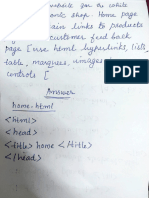 website for a white
goods shop. Home page
contain links to products
customer feed back
page [use html hyperlinks, lists,
table, marquees, images
controls [
Answer
home.html
<html>
<head>
<title> home </title>
</head>